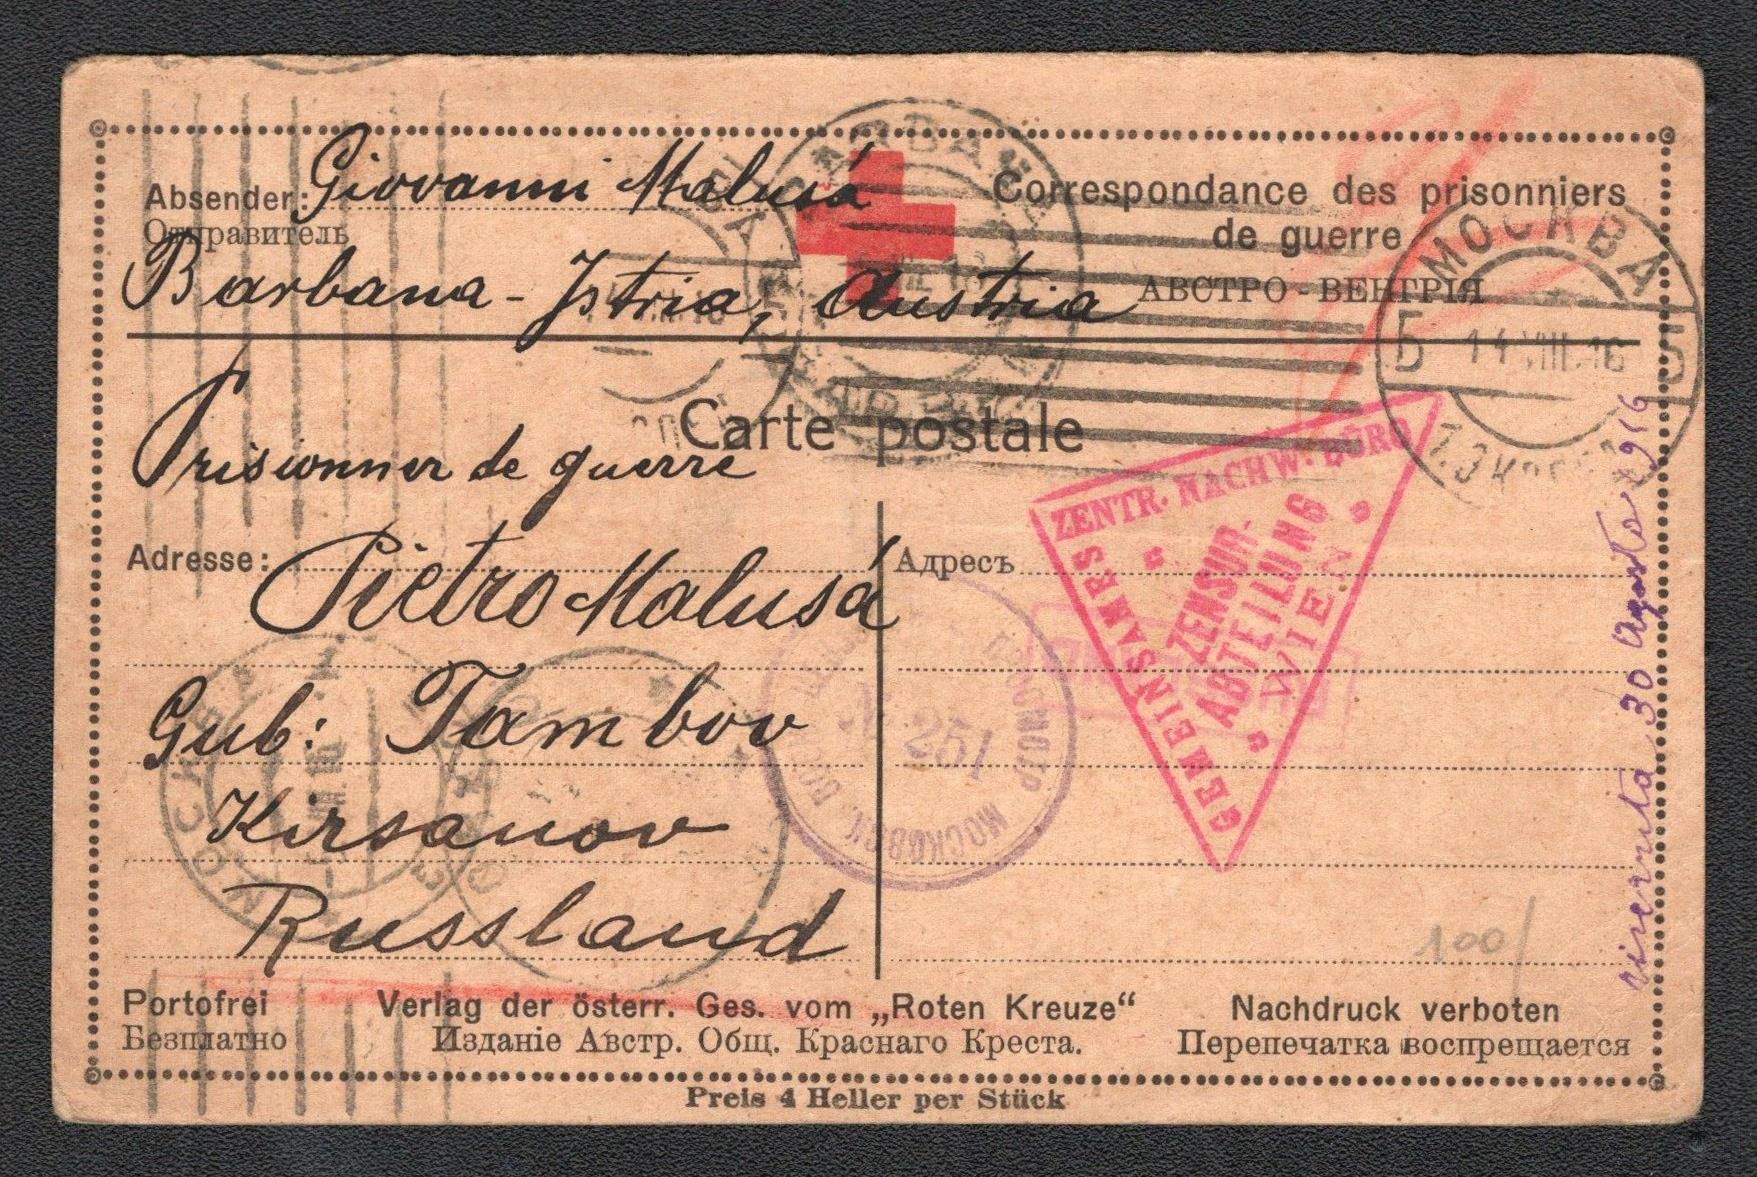 Absender: Giovanni Malusá
Отправитель
Barbana - Istria, Austria
Correspondance des prisonniers
de guerre
АВСТРО - ВЕНГРІЯ
МОСКВА
Б 14 VIII.16 Б
BARBANA
Carte postale
Prisionner de guerre
Adresse: Pietro Malusá
Адресъ
Gub: Tambov
Kirsanov
Russland
ZENTR. NACHW. BÜRO
GEMEINSAMES
ZENSUR-
ABTEILUNG
WIEN
№ 251
МОСКВА
ricevuta 30 Agosto 1916
100/
Portofrei
Безплатно
Verlag der österr. Ges. vom „Roten Kreuze“
Изданіе Австр. Общ. Краснаго Креста.
Nachdruck verboten
Перепечатка воспрещается
Preis 4 Heller per Stück